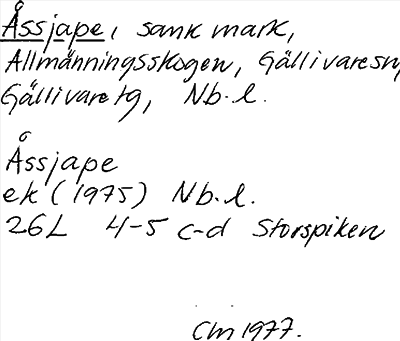 Åssjape, sank mark,
Allmänningsskogen, Gällivaresn,
Gällivare tg, Nb.l.
Åssjape
ek (1975) Nb.l.
26L 4-5 c-d Storspiken
CM 1977.